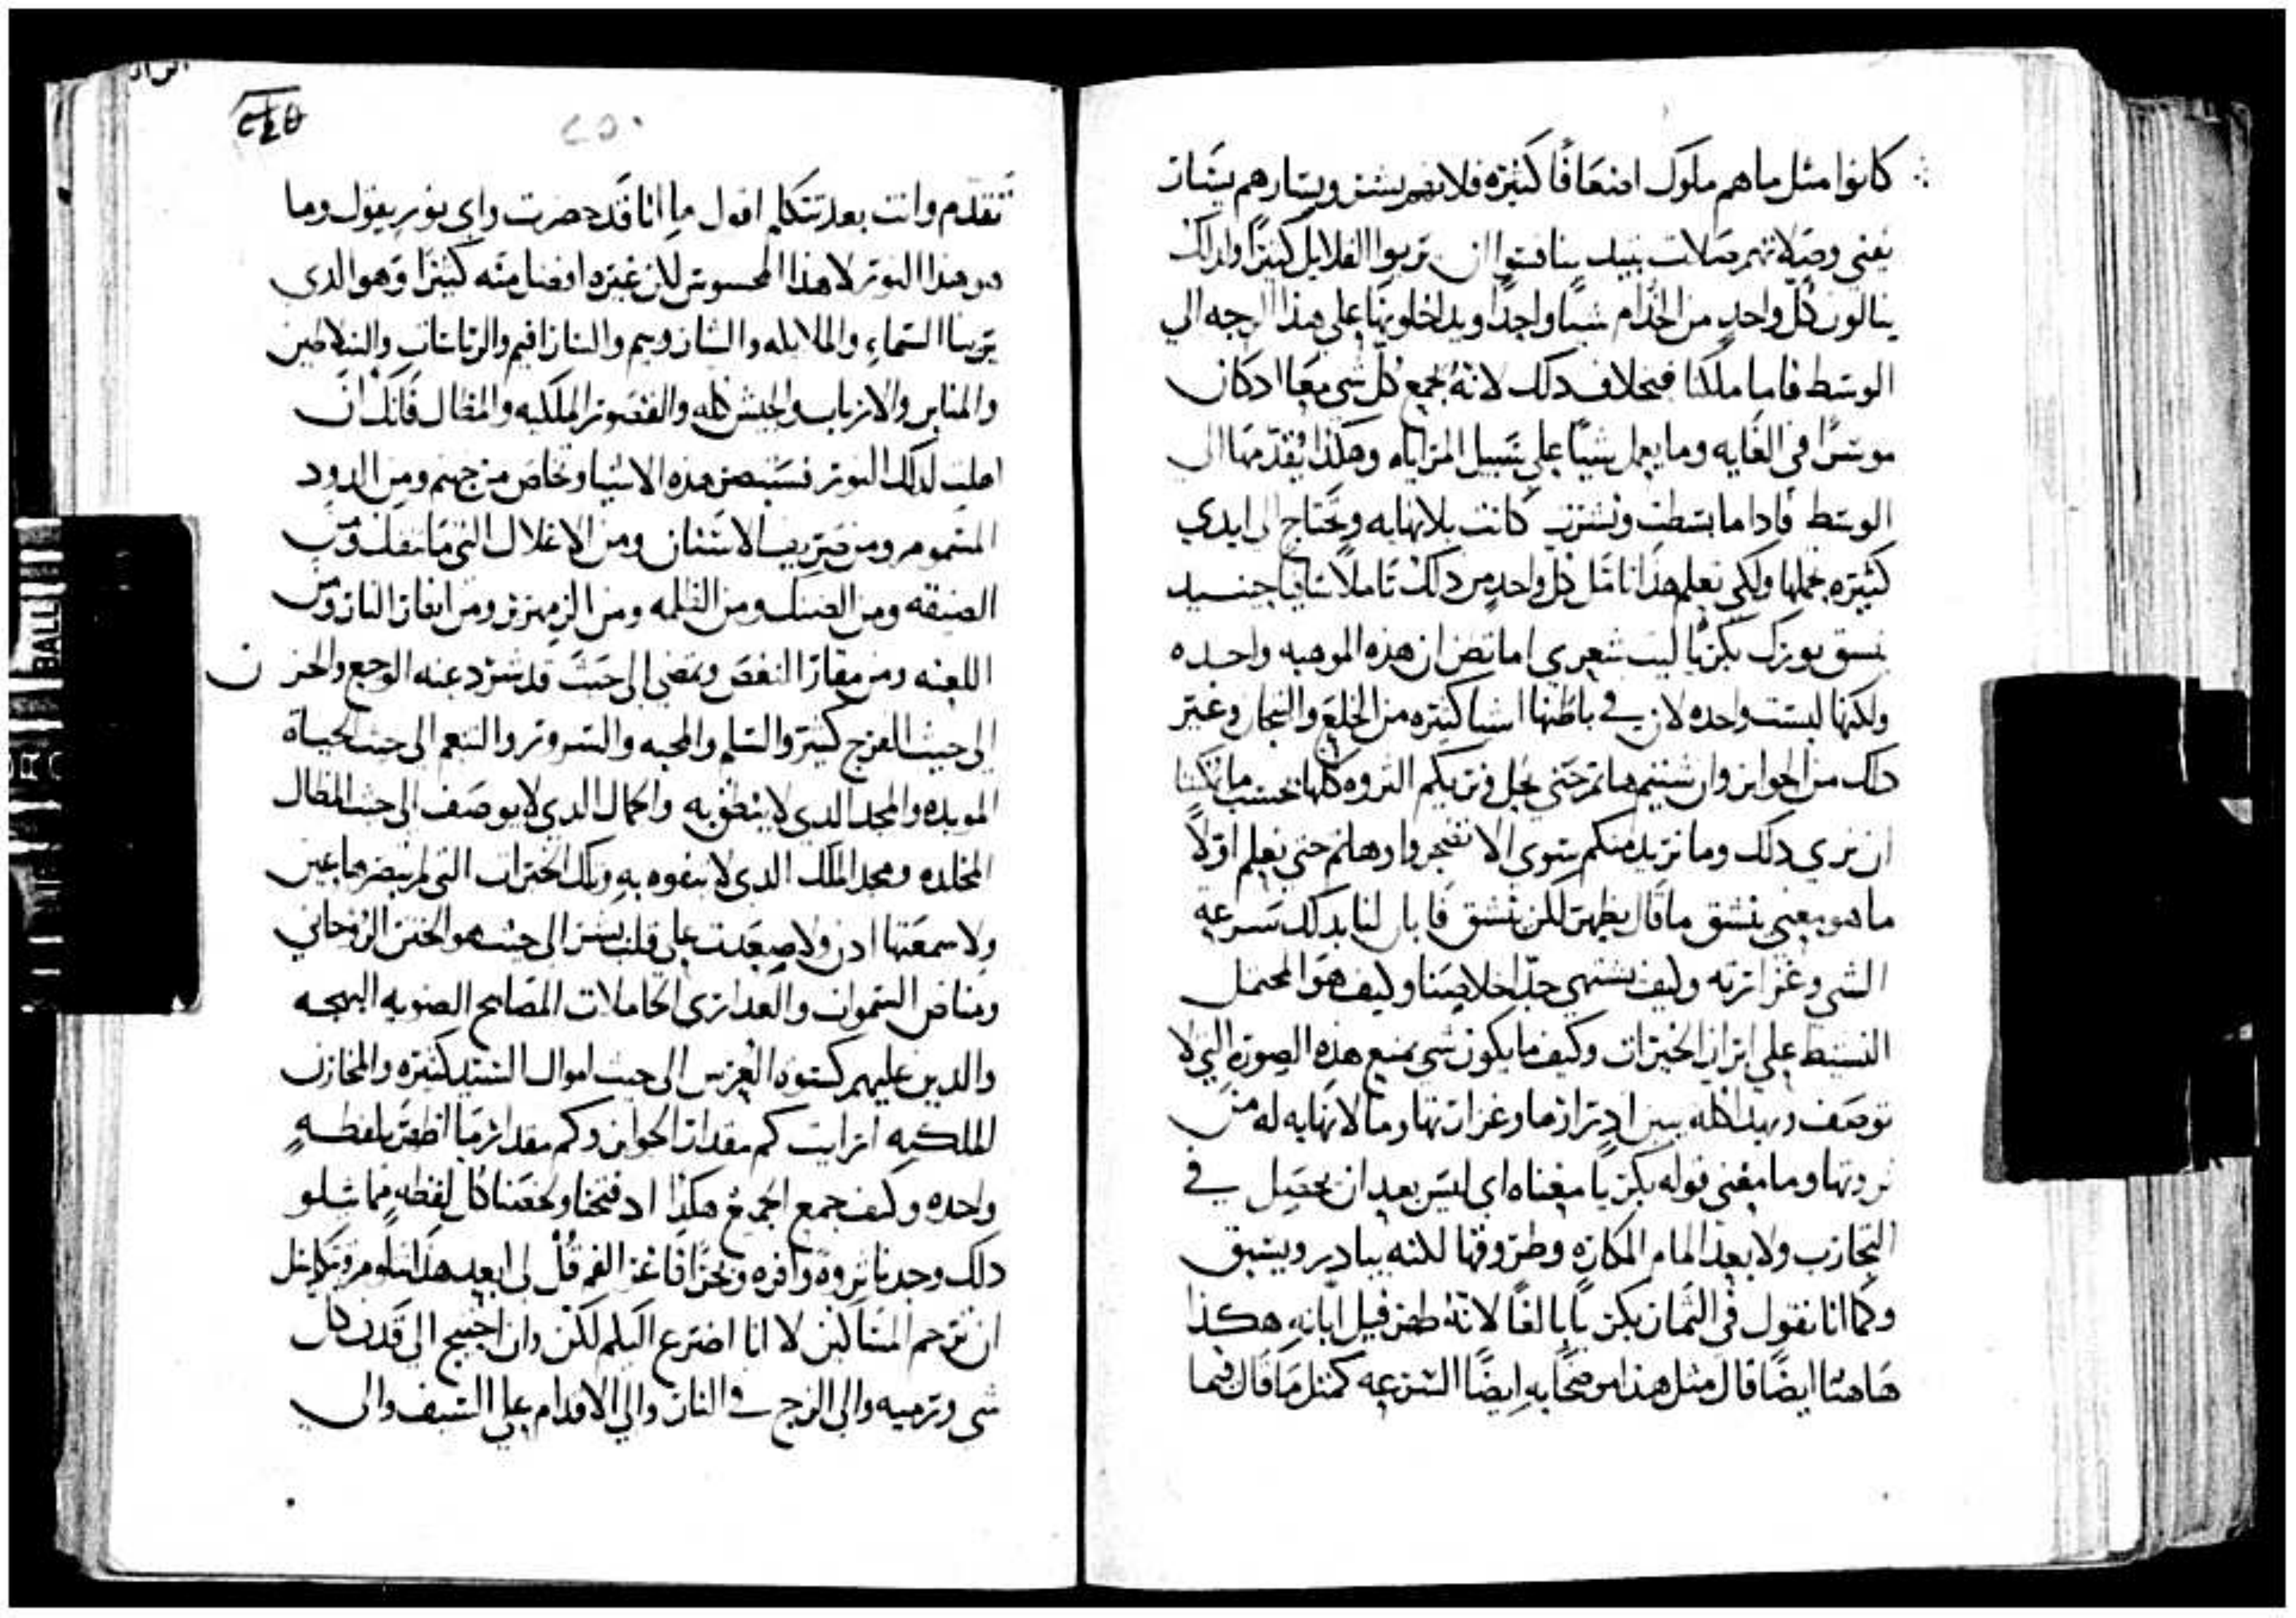 كانوا مثل ما هم ملوك اضعافًا كثيره فلانهم بشر ويسارهم يسار
يفنى وصلاتهم صلات عبيد
ينالون كل واحدٍ من الخدام شيا واحدًا ويدخلونها على هذا الوجه الي
الوسط فاما ملكنا فبخلاف دلك لانه يجمع كل شي معًا ادكان
موسرًا في الغايه وما يعمل شيًا على سبيل المراياه وهكذا يقدمها الى
الوسط فادا ما بسطت ونشرت كانت بلا نهايه وتحتاج الى ايدي
كثيره تحملها ولكي تعلم هذا تامل كل واحدٍ من دلك تاملاً شافيا حينيد
ينسق نورك بكريا ليت شعري اما تظن ان هذه الموهبه واحده
ولكنها ليست واحده لان في باطنها اشيا كثيره من الخلع والتيجان وغير
دلك من الجواهر وان شيتم هلم حتى نحل ونريكم الثروه كلها بحسب ما يمكننا
ان نري دلك وما نريد منكم سوى الا تضجروا وهلم حتى نعلم اولاً
ما هو معنى ينشق ما قال يظهر لكن ينشق فابان لنا بدلك سرعه
الشي وغزارته وكيف يشتهي جدًا خلاصنا وكيف هو المحتمل
النشيط على ابراز الخيرات وكيف ما يكون شي يمنع هذه الصوره التي لا
توصف وبهدا كله يبين ادرارها وغزارتها وما لا نهايه له من
ثروتها وما معنى قوله بكريا معناه اي ليس بعد ان نحصل في
التجارب ولا بعد المام المكاره وطروقها لكنه يبادر ويسبق
وكما انا نقول في الثمار بكريا بالغًا لانه ظهر قبل ابانه هكذا
هاهنا ايضًا قال مثل هذا موضحًا به ايضًا السرعه كمثل ما قال فيما
٢٤٥
٢٥٠
تقدم وانت بعد تتكلم اقول ها انا قد حضرت واي نور يقول وما
هو هذا النور لا هذا المحسوس لكن غيره افضل منه كثيرًا وهو الدي
يرينا السماء والملايكه والشاروبيم والسارافيم والرياسات والسلاطين
والمنابر والارباب والجيش كله والقصور الملكيه والمظال فانك ان
اهلت لدلك النور فستبصر هذه الاشيا وتخلص من جهنم ومن الدود
المسموم ومن صريف الاسنان ومن الاغلال التي ما تنفك ومن
الضيقه ومن الضنك ومن الظلمه ومن الزمهرير ومن انهار النار ومن
اللعنه ومن مقار النغص وتمضي الى حيث قد شرد عنه الوجع والحزن
الى حيث الفرح كثير والسلم والمحبه والسرور والنعم الى حيث الحياة
الموبده والمجد الدي لا ينطق به والجمال الدي لا يوصف الى حيث المظال
المخلده ومجد الملك الدي لا يتفوه به وتلك الخيرات التي لم تبصرها عين
ولا سمعتها ادن ولا صعدت على قلب بشر الى حيث هو الختن الروحاني
ومناص السموات والعدارى الحاملات المصابيح الضويه البهجه
والدين عليهم كسوة العرس الى حيث اموال السيد كثيره والمخازن
الملكيه ارايت كم مقدار الجواهر وكم مقدار ما اظهر بلفظه
واحده وكيف جمع الجميع هكذا اد فتحنا كل لفظه مما يتلو
دلك وجدنا ثروة وافره وبحرًا فاغر الفم قل لي ابعد هذا
ان نرحم المساكين لا انا اضرع اليكم لكن وان احتيج الى قدر كل
شي وترميه والى الزج في النار والي الاقدام على السيف والى